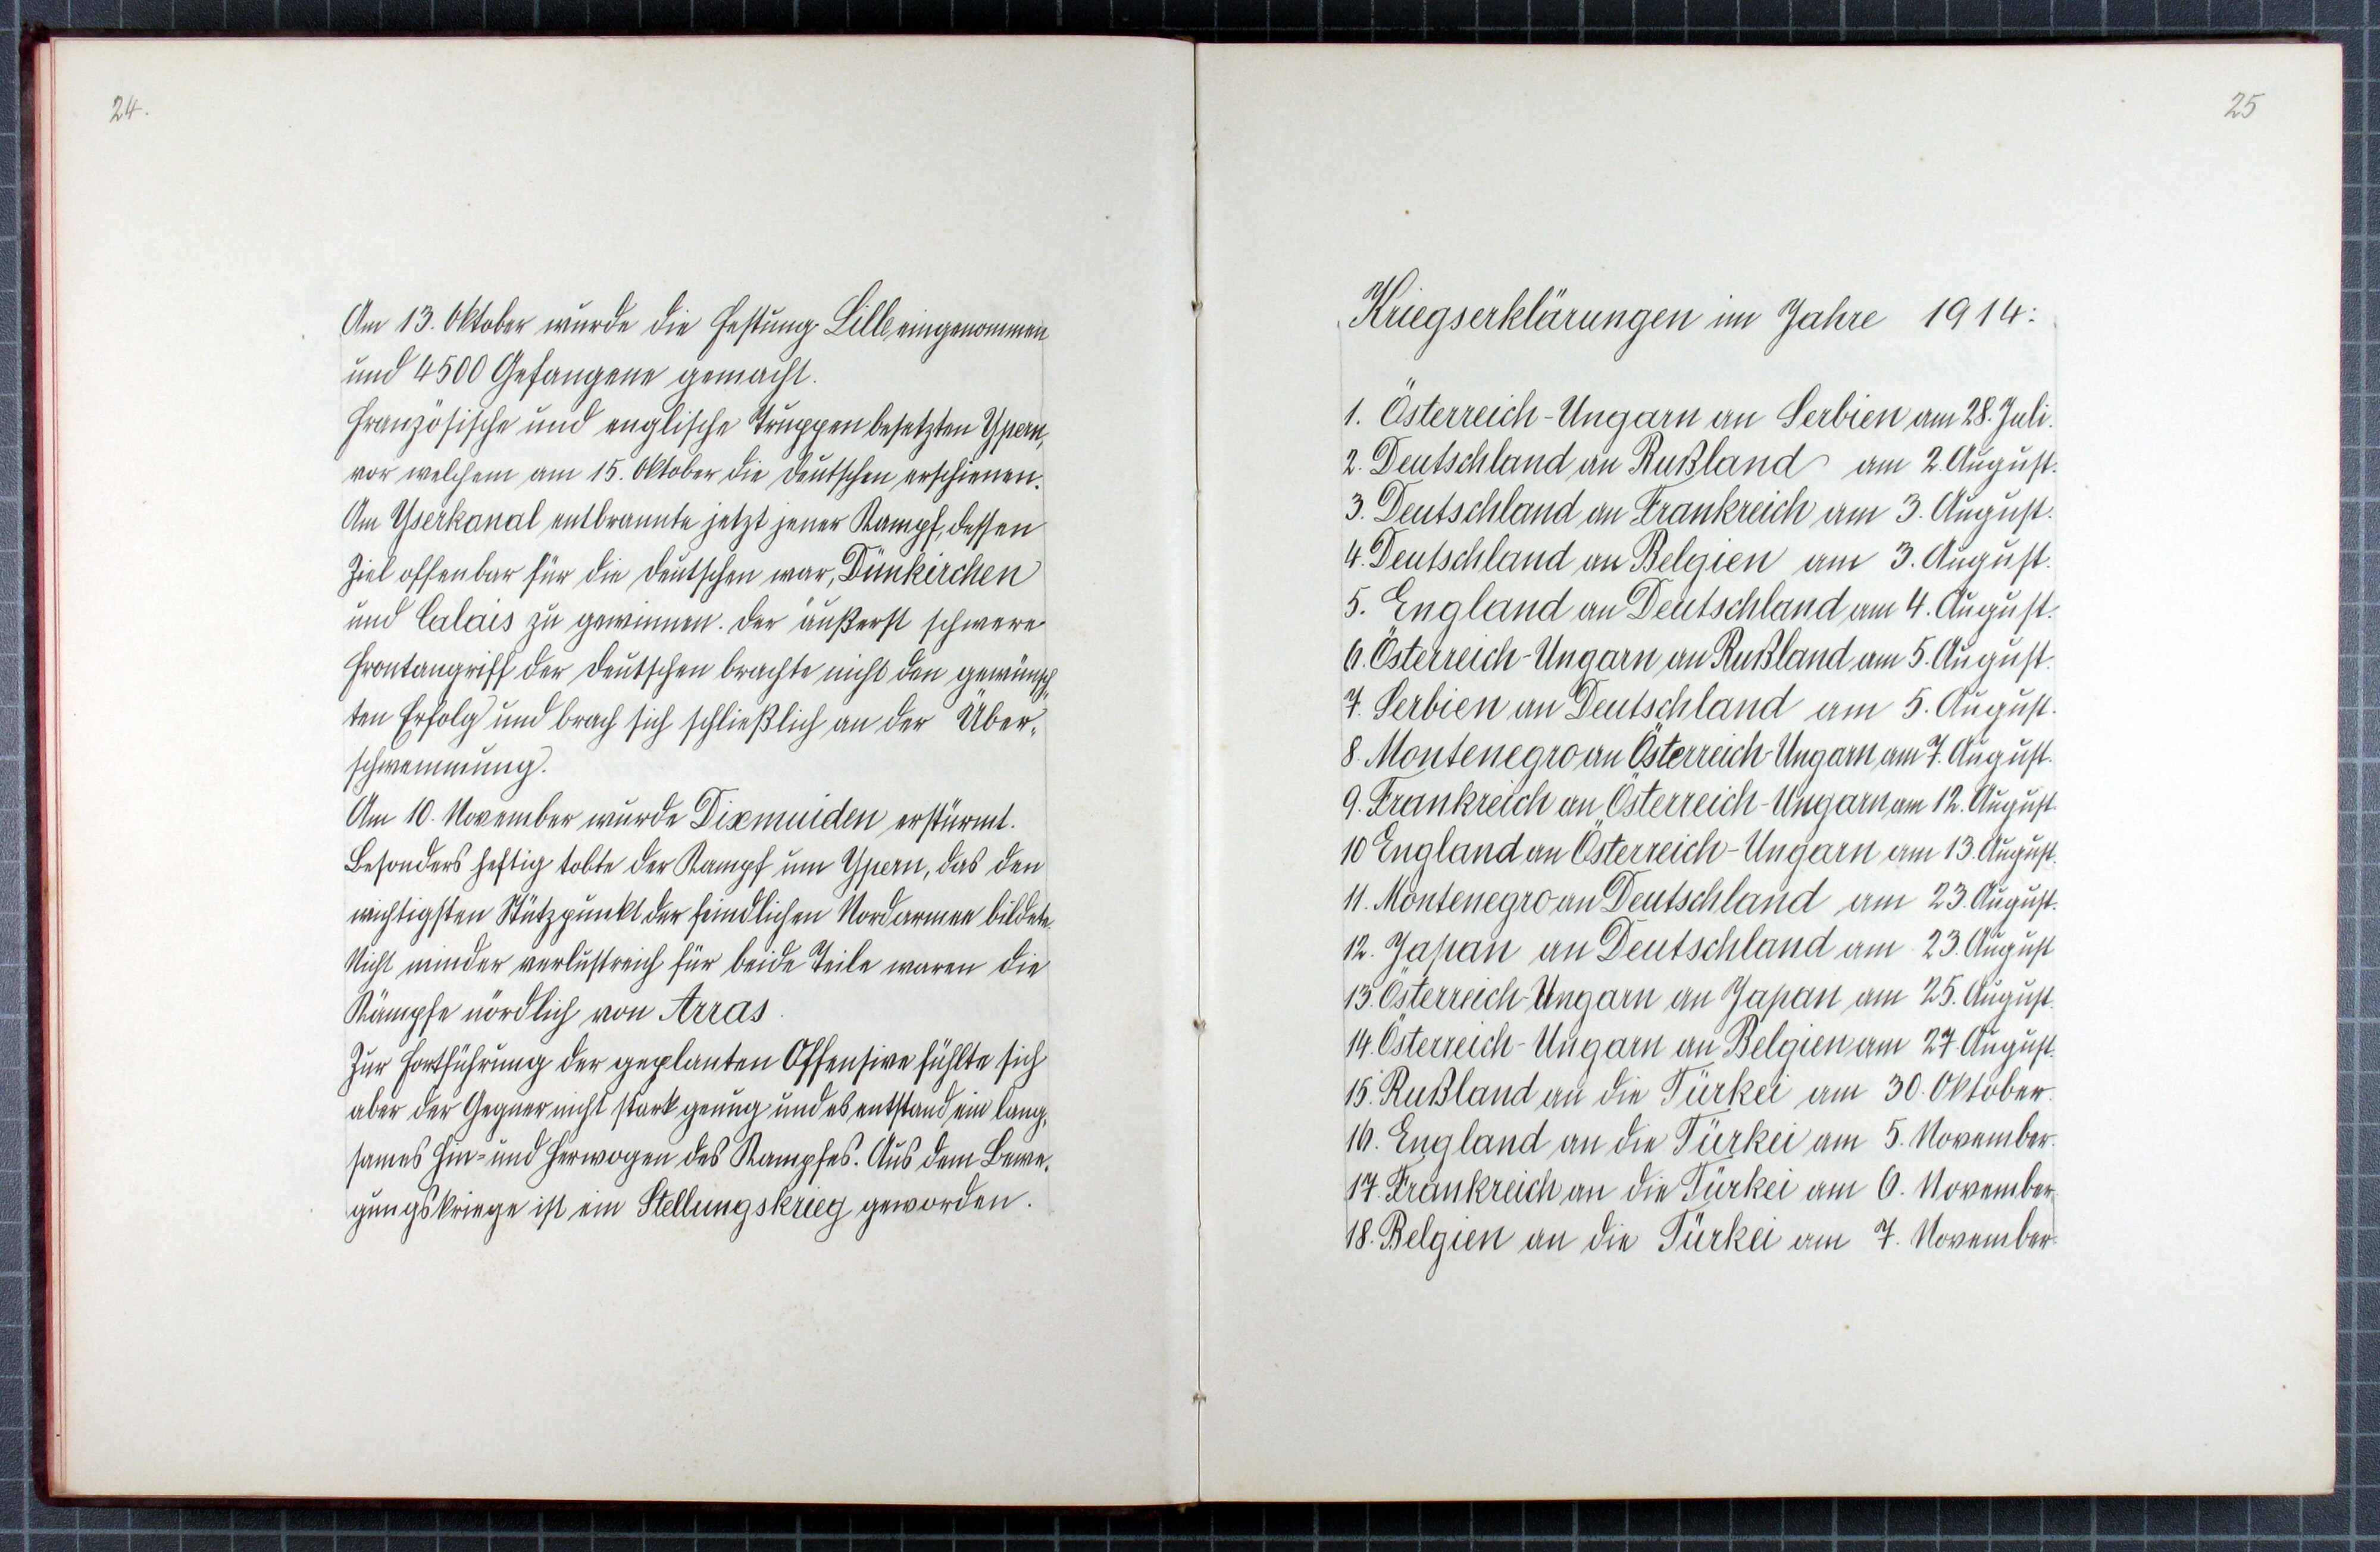 24.
Am 13. Oktober wurde die Festung Lille eingenommen
und 4500 Gefangene gemacht.
Französische und englische Truppen besetzten Ypern,
vor welchem am 15. Oktober die Deutschen erschienen.
Am Yserkanal entbrannte jetzt jener Kampf, dessen
Ziel offenbar für die Deutschen war, Dünkirchen
und Calais zu gewinnen. Der äußerst schwere
Frontangriff der Deutschen brachte nicht den gewünsch„
ten Erfolg und brach sich schließlich an der Über„
schwemmung.
Am 10. November wurde Dixmuiden erstürmt.
Besonders heftig tobte der Kampf um Ypern, das den
wichtigsten Stützpunkt der feindlichen Nordarmee bildete.
Nicht minder verlustreich für beide Teile waren die
Kämpfe nördlich von Arras.
Zur Fortführung der geplanten Offensive fühlte sich
aber der Gegner nicht stark genug und es entstand ein lang„
sames Hin- und Herwogen des Kampfes. Aus dem Bewe„
gungskriege ist ein Stellungskrieg geworden.
25
Kriegserklärungen im Jahre 1914:
1. Österreich-Ungarn an Serbien am 28. Juli.
2. Deutschland an Rußland am 2. August.
3. Deutschland an Frankreich am 3. August.
4. Deutschland an Belgien am 3. August.
5. England an Deutschland am 4. August.
6. Österreich-Ungarn an Rußland am 5. August.
7. Serbien an Deutschland am 5. August.
8. Montenegro an Österreich-Ungarn am 7. August.
9. Frankreich an Österreich-Ungarn am 12. August.
10 England an Österreich-Ungarn am 13. August.
11. Montenegro an Deutschland am 23. August.
12. Japan an Deutschland am 23. August
13. Österreich-Ungarn an Japan am 25. August.
14. Österreich-Ungarn an Belgien am 27. August.
15. Rußland an die Türkei am 30. Oktober.
16. England an die Türkei am 5. November.
17. Frankreich an die Türkei am 6. November.
18. Belgien an die Türkei am 7. November.